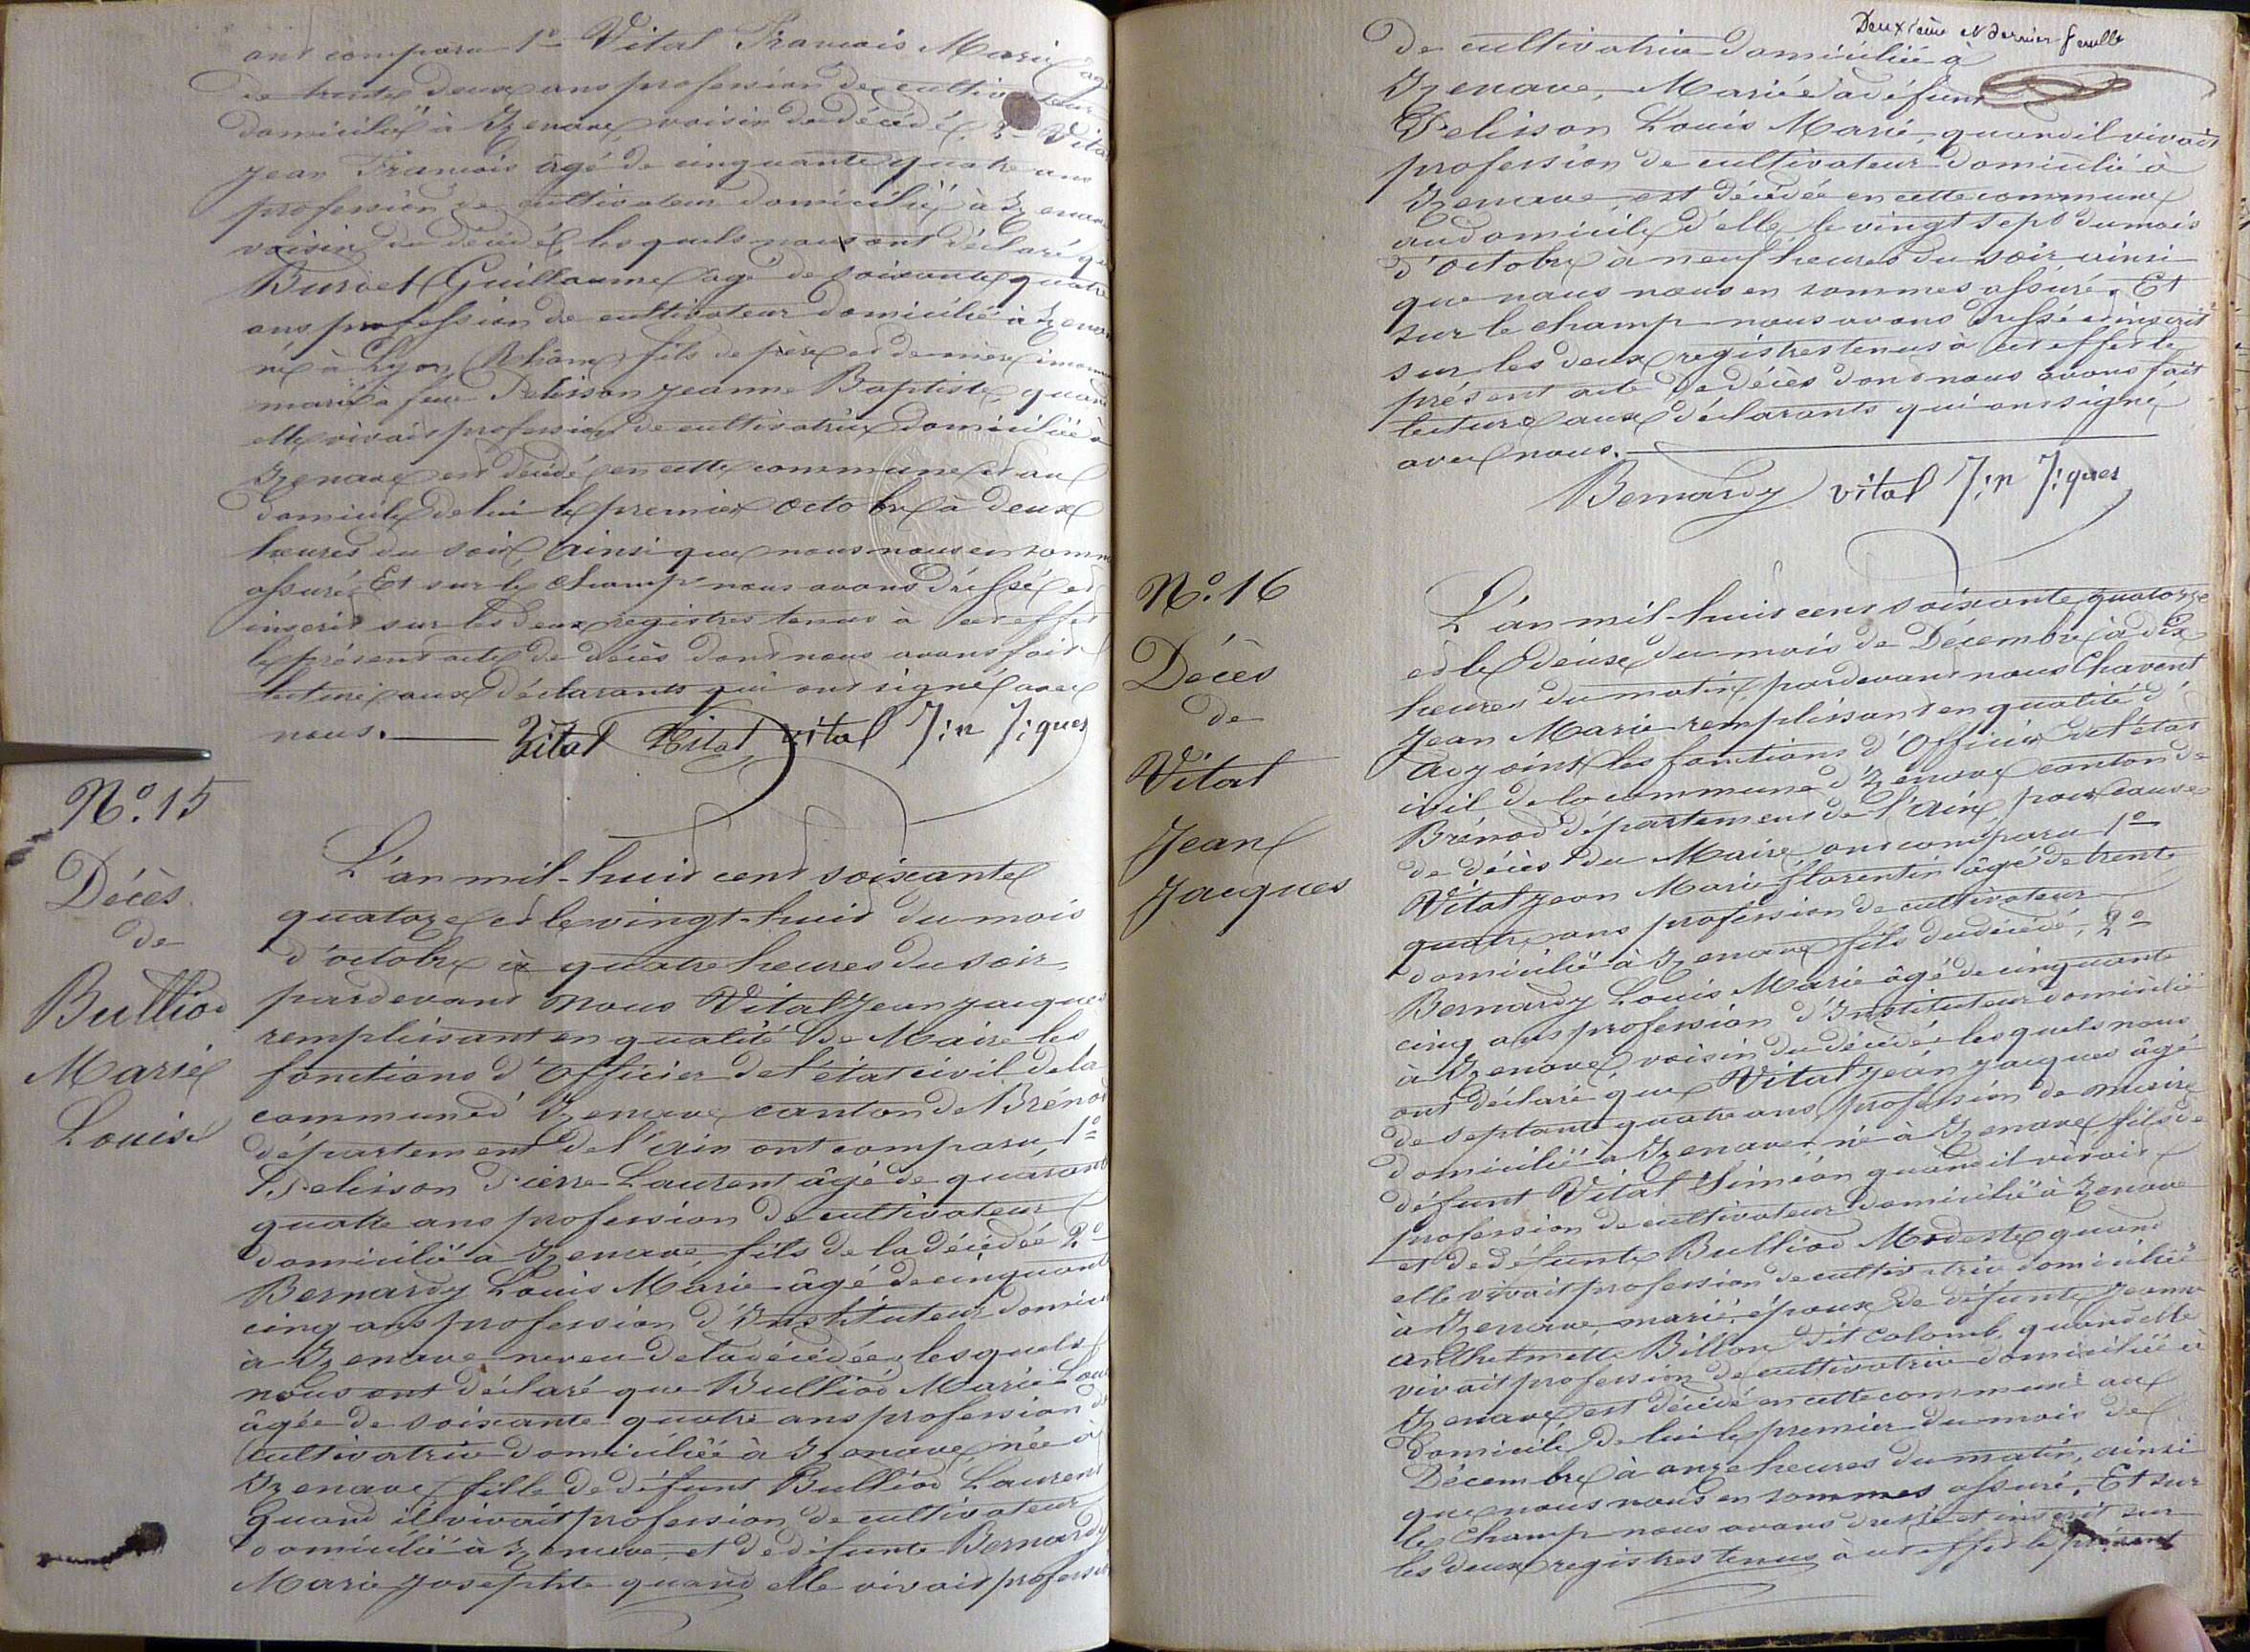 ont comparu 1º Vital Francois Marie âgé
de trente deux ans profession de cultivateur
domicilié à Izenave, voisin du décédé, 2º Vital
Jean Francois âgé de cinquante quatre ans
profession de cultivateur domicilié à Izenave
voisin du décédé, les quels nous ont déclaré que
Burdet Guillaume âgé de soixante quatre
ans profession de cultivateur domicilié à Izenave
né à Lyon (Rhône) fils de père et de mère
marié à feue Pelisson Jeanne Baptiste, quand
elle vivait profession de cultivatrice domiciliée à
Izenave est décédé en cette commune et au
domicile de lui le premier octobre à deux
heures du soir, ainsi que nous nous en sommes
assuré. Et sur le champ nous avons dressé et
inscrit sur les deux registres tenus à cet effet
le présent acte de décès dont nous avons fait
lecture aux déclarants qui ont signé avec
nous. Vital Vital vital J:n J:ques
Nº. 15
Décès
de
Bulliod
Marie
Louise
L'an mil-huit cent soixante
quatorze et le vingt-huit du mois
d'octobre à quatre heures du soir,
pardevant nous Vital Jean Jacques
remplissant en qualité de Maire les
fonctions d'Officier de l'état civil de la
commune d'Izenave canton de Brénod
département de l'Ain ont comparu, 1º
Pelisson Pierre Laurent âgé de quarante
quatre ans profession de cultivateur
domicilié à Izenave, fils de la décédée 2º
Bernardy Louis Marie âgé de cinquante
cinq ans profession d'Instituteur domicilié
à Izenave neveu de la décédée, lesquels
nous ont déclaré que Bulliod Marie Louise
âgée de soixante quatre ans profession de
cultivatrice domiciliée à Izenave, née à
Izenave, fille de défunt Bulliod Laurent
Quand il vivait profession de cultivateur
domicilié à Izenave, et de défunte Bernardy
Marie Josephte quand elle vivait profession
Deuxième et dernier feuille
de cultivatrice domiciliée à
Izenave, Mariée à défunt
Pelisson Louis Marie, quand il vivait
profession de cultivateur domicilié à
Izenave, est décédée en cette commune
au domicile d'elle, le vingt sept du mois
d'octobre à neuf heures du soir ainsi
que nous nous en sommes assuré. Et
sur le champ nous avons dressé et inscrit
sur les deux registres tenus à cet effet le
présent acte de décès dont nous avons fait
lecture aux déclarants qui ont signé
avec nous.
Bernardy vital J:n J:ques
Nº. 16
Décès
de
Vital
Jean
Jacques
L'an mil-huit cent soixante quatorze
et le deux du mois de Décembre à dix
heures du matin, pardevant nous Chavent
Jean Marie remplissant en qualité d'
Adjoint les fonctions d'Officier de l'état
civil de la commune d'Izenave canton de
Brénod département de l'Ain, pour cause
de décès du Maire, ont comparu 1º
Vital Jean Marie florentin âgé de trente
quatre ans profession de cultivateur
domicilié à Izenave fils du décédé, 2º
Bernardy Louis Marie âgé de cinquante
cinq ans profession d'Instituteur domicilié
à Izenave, voisin du décédé lesquels nous
ont déclaré que Vital Jean Jacques âgé
de septante quatre ans, profession de maire
domicilié à Izenave, né à Izenave fils de
défunt Vital Siméon quand il vivait
profession de cultivateur domicilié à Izenave
et de défunte Bulliod Modeste quand
elle vivait profession de cultivatrice domiciliée
à Izenave, marié, époux de défunte Jeanne
Anthelmette Billon dit Colomb, quand elle
vivait profession de cultivatrice domiciliée à
Izenave, est décédé en cette commune au
domicile de lui le premier du mois de
Décembre à onze heures du matin, ainsi
que nous nous en sommes assuré. Et sur
le champ nous avons dressé et inscrit sur
les deux registres tenus à cet effet le présent